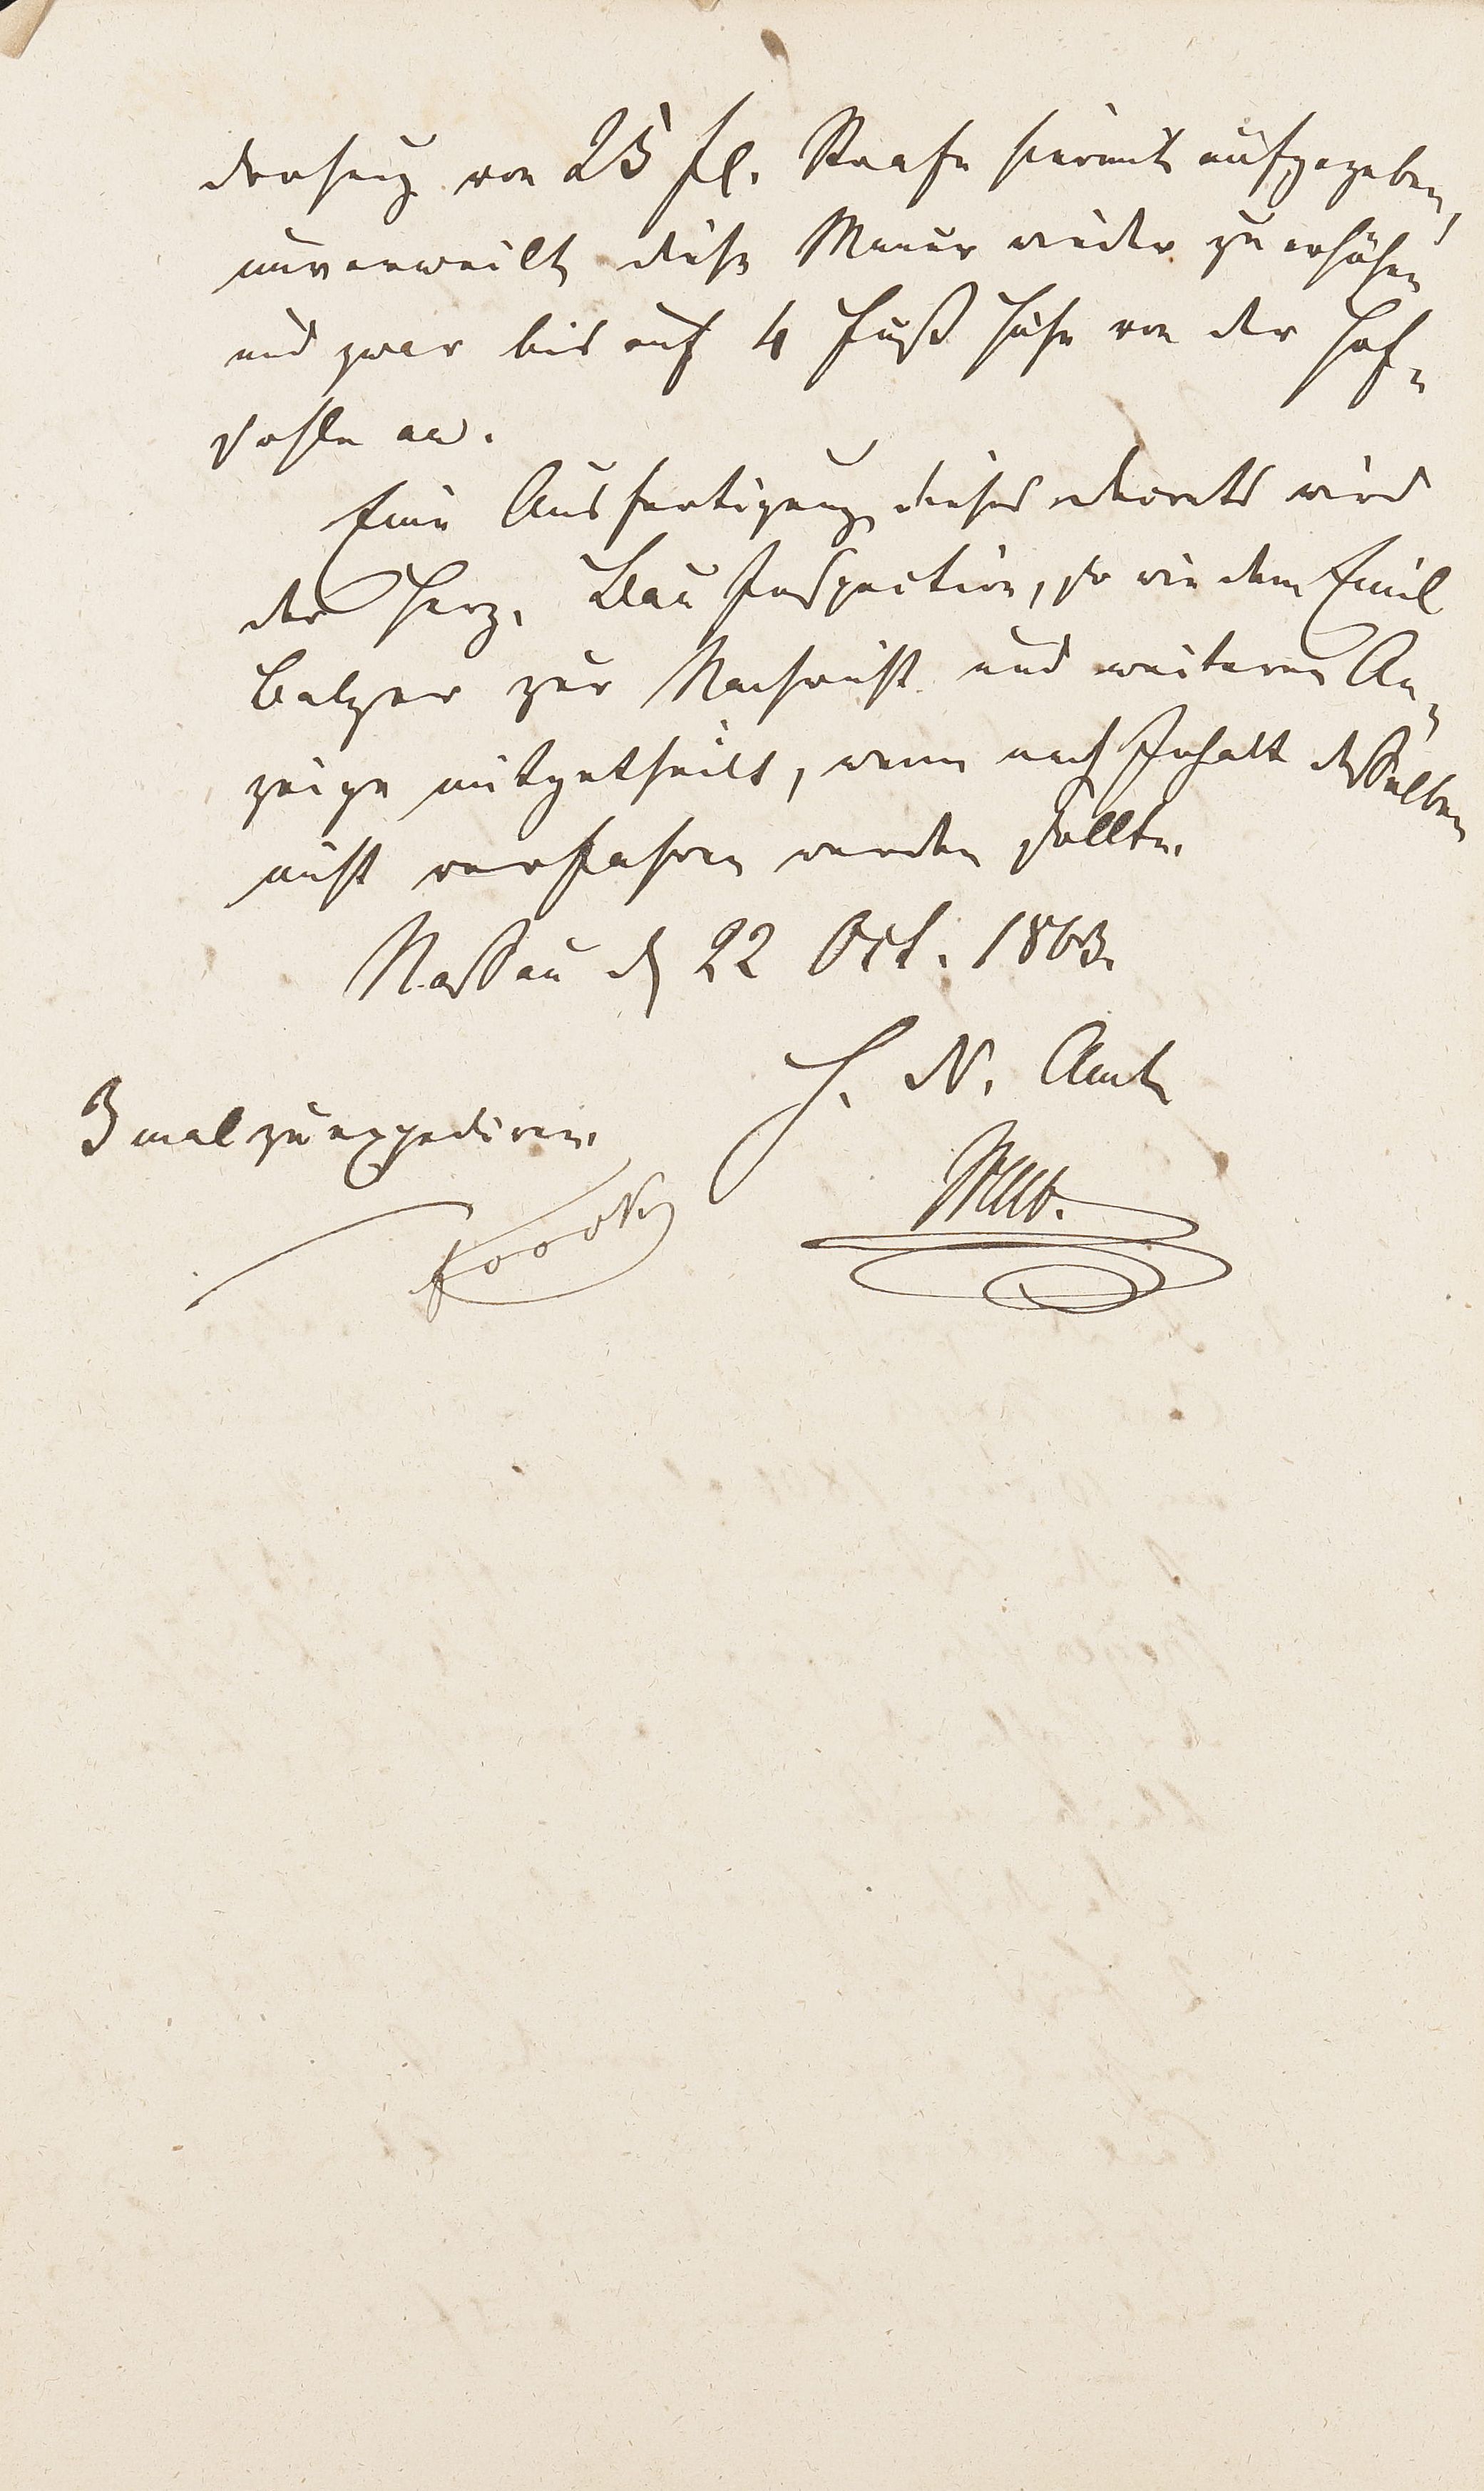 drohung von 25 fl. Strafe hiermit aufgegeben,
unverweilt diese Mauer wieder zu erhöhen
und zwar bis auf 4 Fuß Höhe von der Hof-
sohle an.
Eine Ausfertigung dieses Decrets wird
der Herz. Bau Inspection, so wie dem Emil
Balzer zur Nachricht und weiteren An-
zeige mitgetheilt, wenn nach Inhalt desselben
nicht verfahren werden sollte.
Nassau d 22 Oct. 1863.
H. N. Amt
3 mal zu expediren.